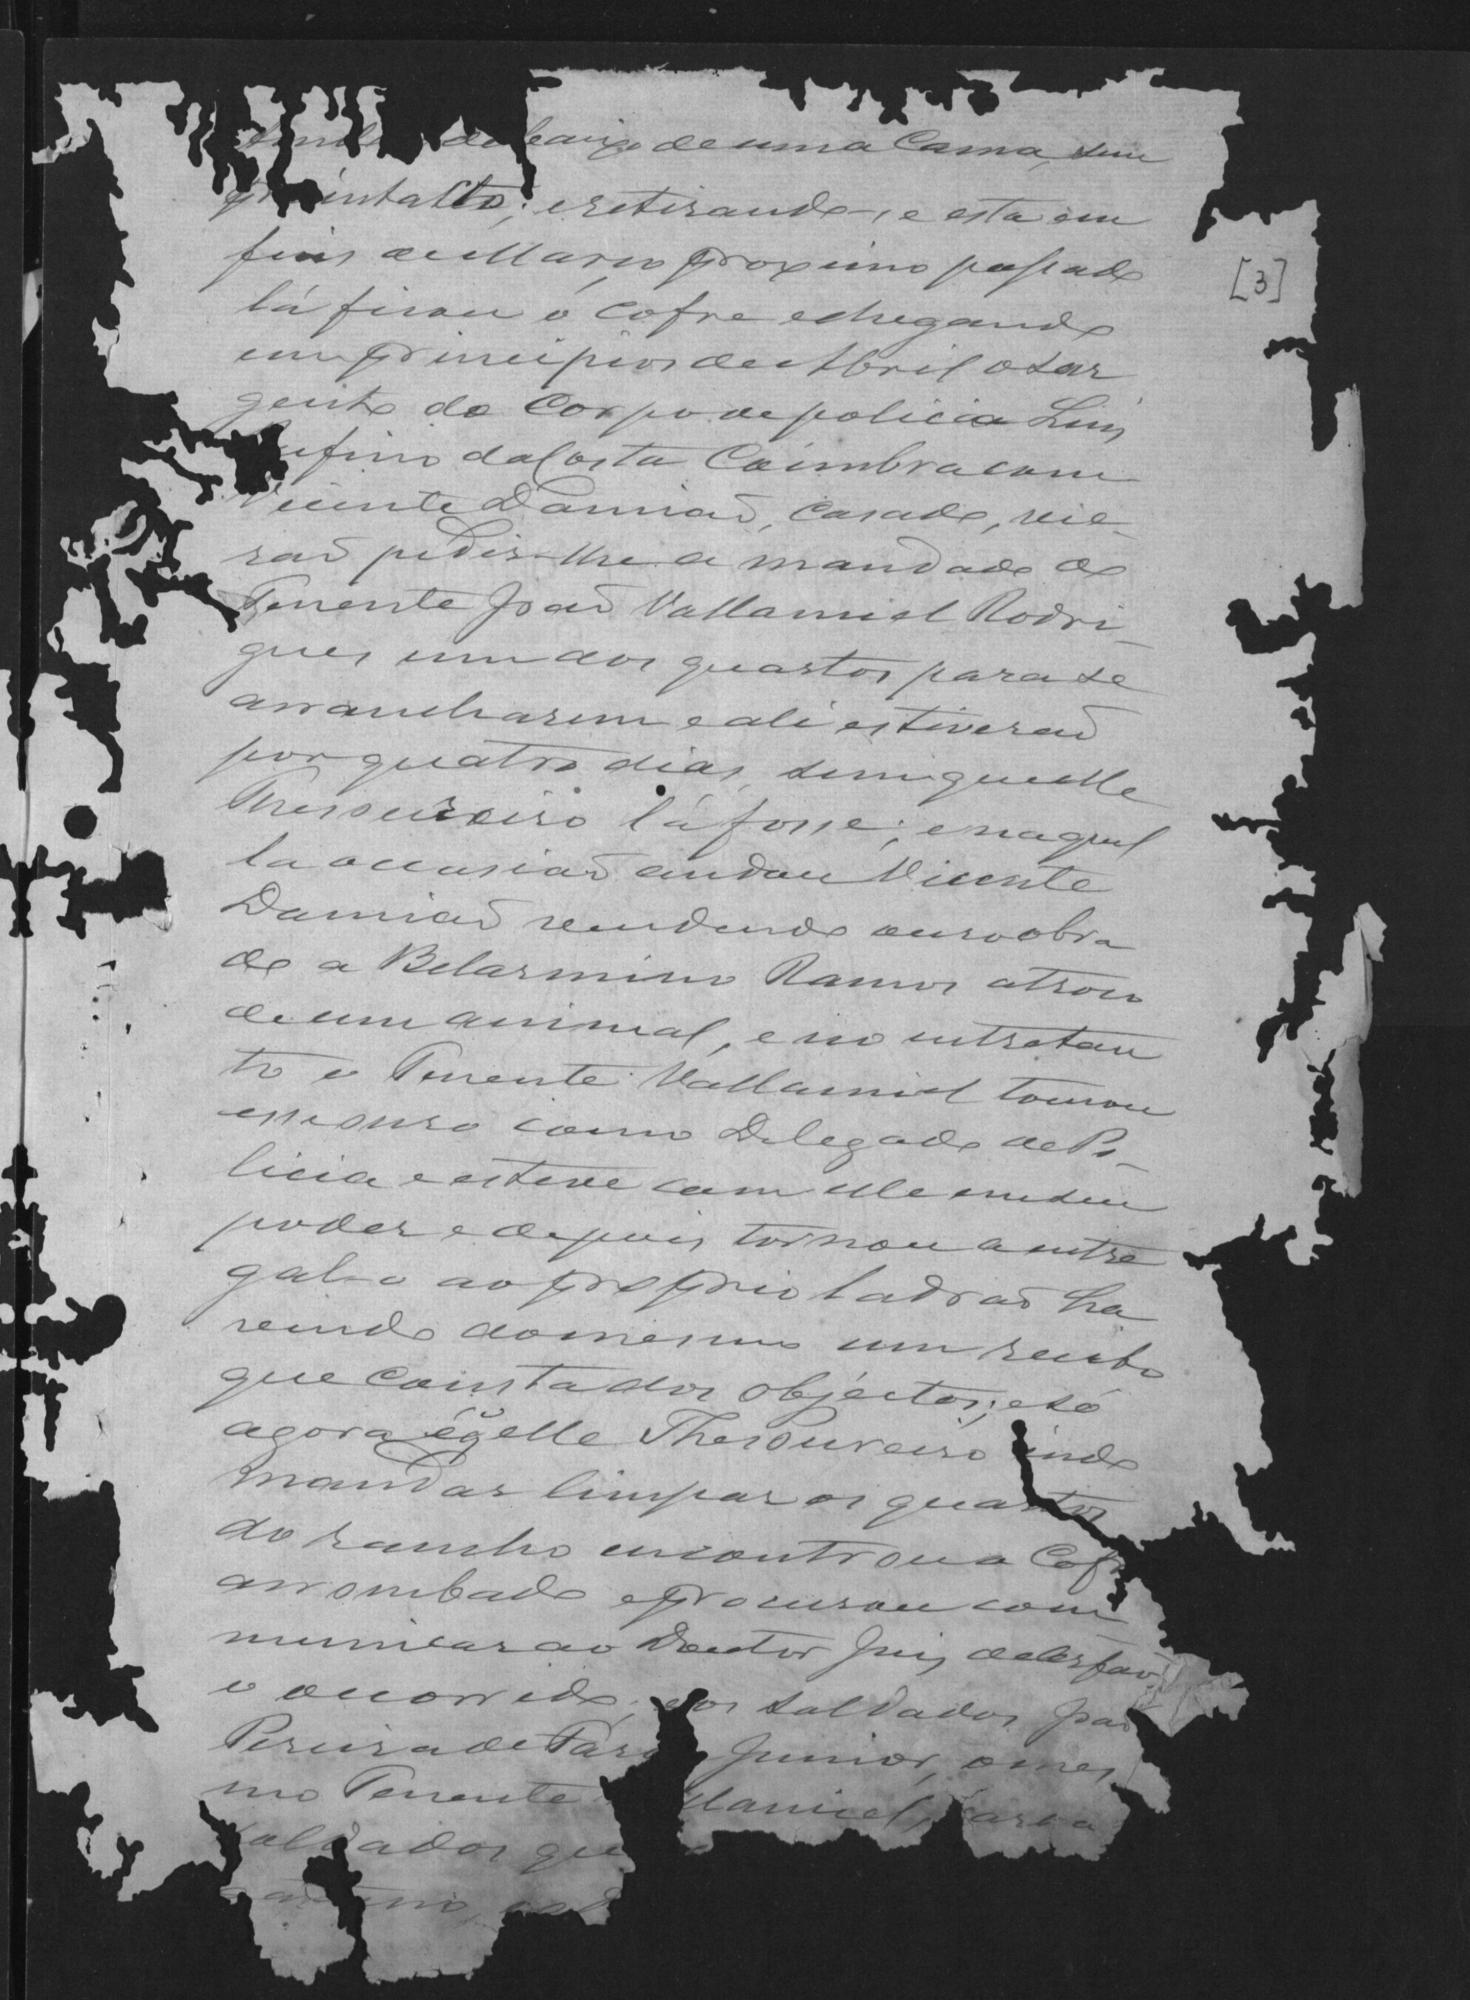 debaixo de uma Cama, sem
intacto; e retirando-se esta em
fins de Março proximo passado
lá ficou o cofre e chegando
em principios de Abril o Sar
gento do Corpo de policia Luis
Rufino da Costa Coimbra com
Vicente Damião, casado, vie-
rão pedir-lhe a mandado do
Tenente João Vallamiel Rodri-
gues um dos quartos para se
arrancharem e ali estiverão
por quatro dias, sem que elle
Thesoureiro lá fosse; e naquel
la occasião andou Vicente
Damião vendendo ouro obra
do a Belarmino Ramos a troco
de um animal, e no entretan
to o Tenente Vallamiel tomou
esse ouro como Delegado de Po-
licia e esteve com elle em seu
poder e depois tornou a entre
gal-o ao proprio ladrão ha
vendo do mesmo um recibo
que consta dos objectos; e só
agora é q̃ elle Thesoureiro indo
mandar limpar os quartos
do rancho encontrou o Cofre
arrombado e procurou com
municar ao Doutor Juiz de Orfãos
o occorrido; e os soldados João
Pereira de Junior, o mes
mo Tenente
soldados que
[3]